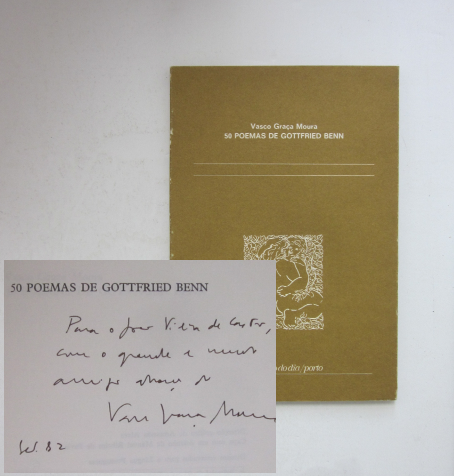 Vasco Graça Moura
50 POEMAS DE GOTTFRIED BENN
do dia/porto
50 POEMAS DE GOTTFRIED BENN
Para o José Vieira de Castro,
com o grande e
amigo abraço do
Vasco Graça Moura
Set. 82